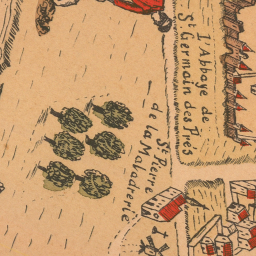 L'Abbaye de
St Germain des Prés
St Pierre
de la Maladrerie